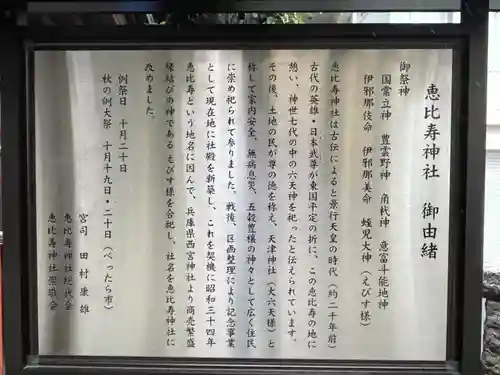 恵比寿神社 御由緒
御祭神
国常立神 豊雲野神 角杙神 意富斗能地神
伊邪那岐命 伊邪那美命 蛭児大神(えびす様)
恵比寿神社は古伝によると景行天皇の時代(約二千年前)
古代の英雄・日本武尊が東国平定の折に、この恵比寿の地に
憩い、神世七代の中の六天神を祀ったと伝えられています。
その後、土地の民が尊の徳を称え、天津神社(大六天様)と
称して家内安全、無病息災、五穀豊穣の神々として広く住民
に崇め祀られて参りました。戦後、区画整理により記念事業
として現在地に社殿を新築し、これを契機に昭和三十四年
恵比寿という地名に因んで、兵庫県西宮神社より商売繁盛
縁結びの神である えびす様を合祀し、社名を恵比寿神社に
改めました。
例祭日 十月二十日
秋の例大祭 十月十九日・二十日(べったら市)
宮司 田村康雄
恵比寿神社総代会
恵比寿神社崇敬会